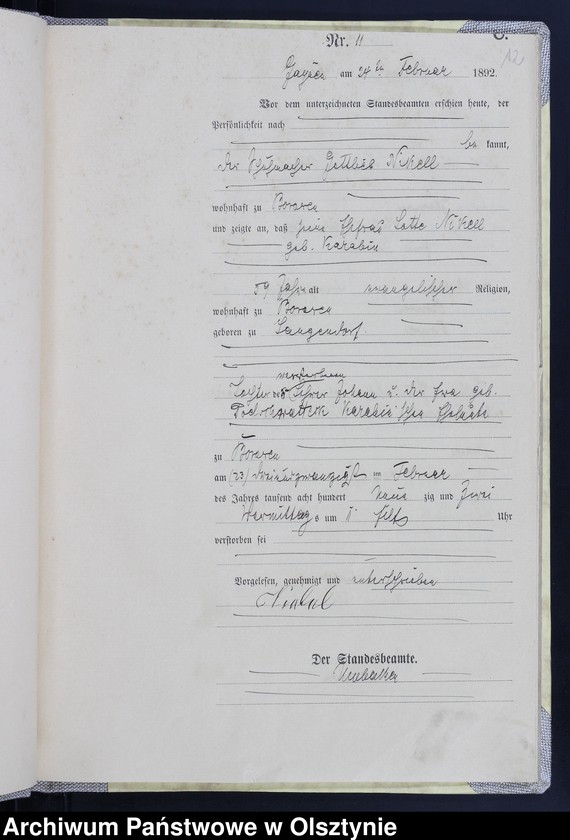 C.
12
Nr. 11
am 24 ten Februar 1892.
Vor dem unterzeichneten Standesbeamten erschien heute, der
Persönlichkeit nach
be kannt,
der Gottlieb Nikell
wohnhaft zu Bororen
und zeigte an, daß seine Ehefrau Lotte Nikell
geb. Karabin
59 Jahre alt evangelischer Religion,
wohnhaft zu Bororen
geboren zu Langendorf
verstorbenen
Tochter des Johann u. der Eva geb.
Karabin'schen Eheleute
zu Bororen
am (23) dreiundzwanzigst en Februar
des Jahres tausend acht hundert neun zig und zwei
Vormittags um elf Uhr
verstorben sei
Vorgelesen, genehmigt und unterschrieben
Der Standesbeamte.
Archiwum Państwowe w Olsztynie